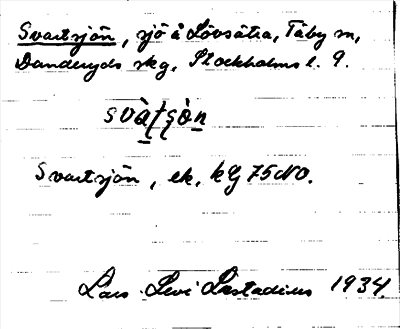 Svartsjön, sjö å Lövsätra, Täby sn,
Danderyds skg, Stockholms l. 9.
Svartsjön, ek. kbl 75 NO.
Lars Levi Læstadius 1934.